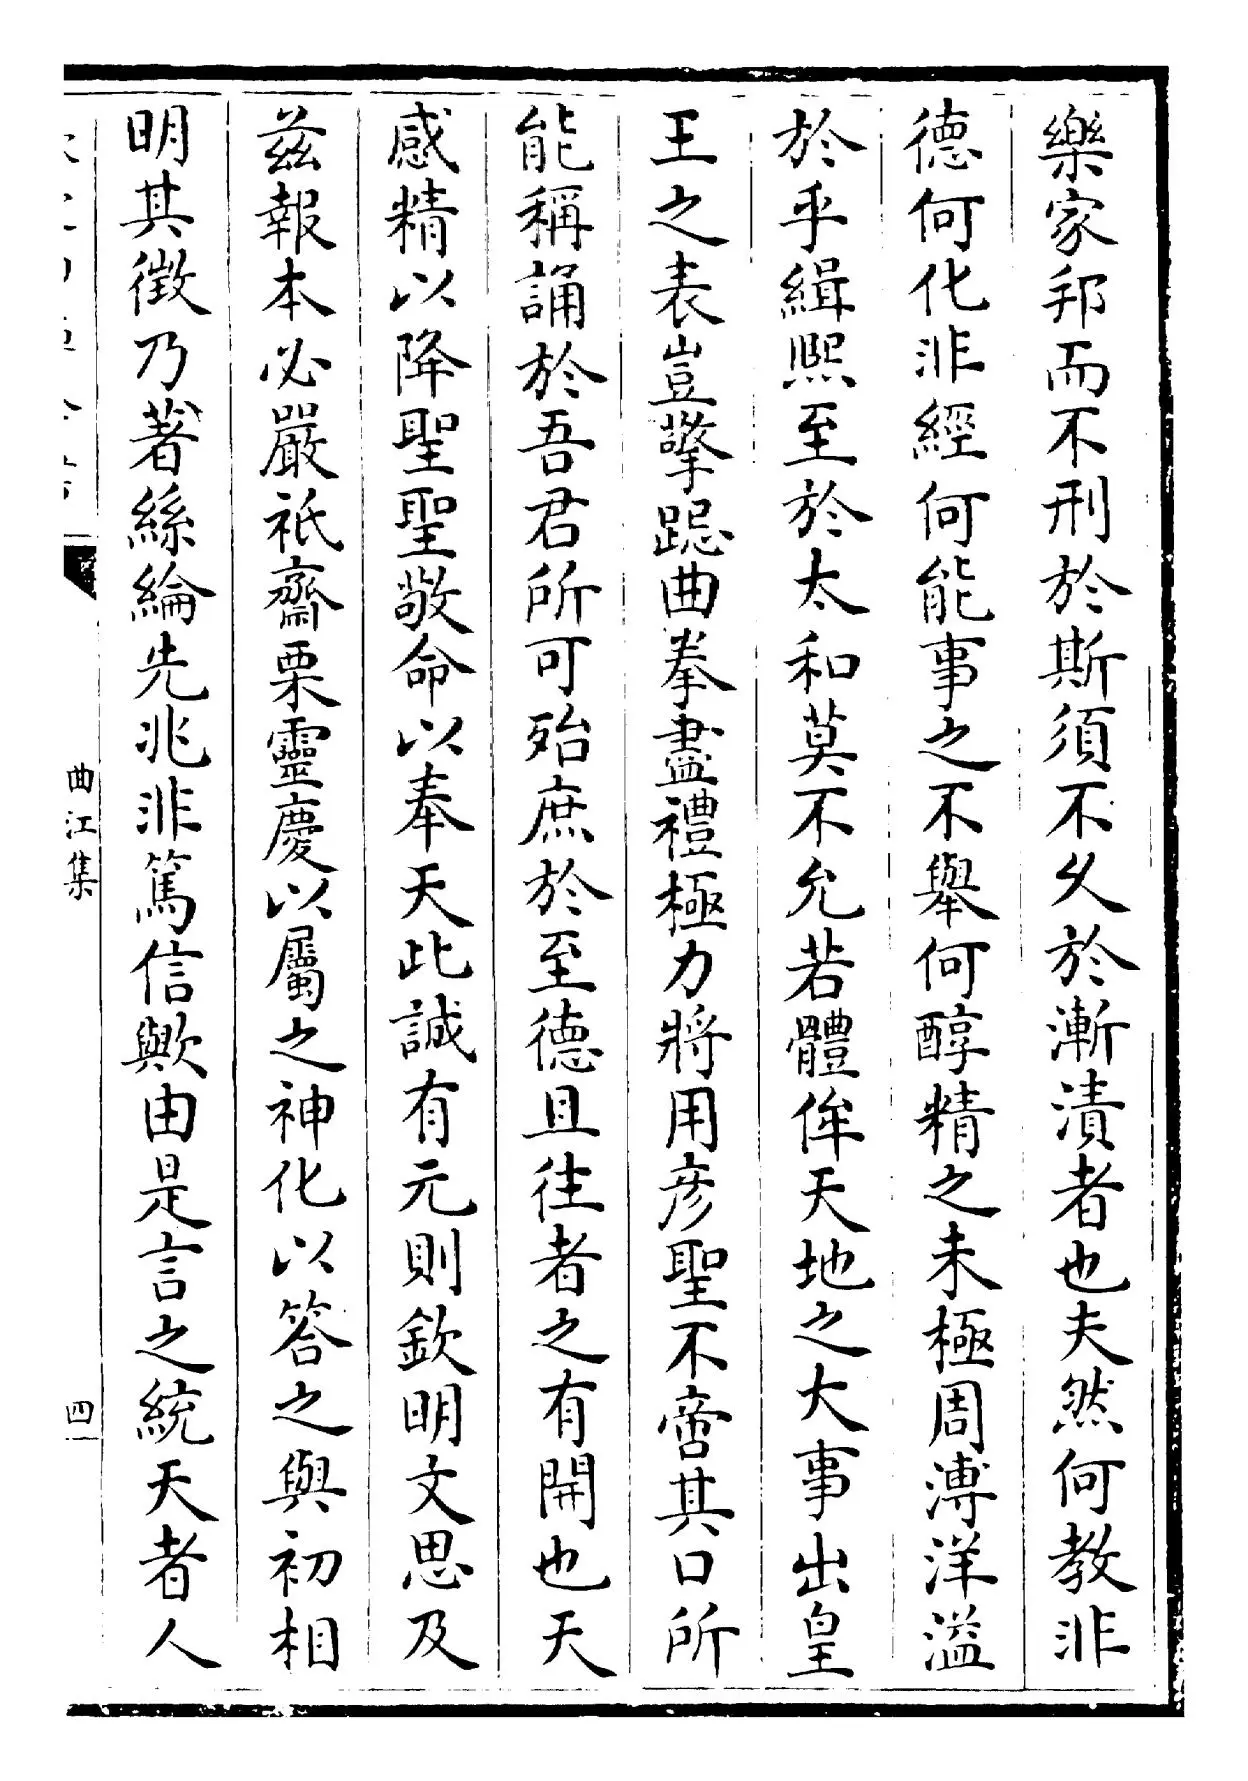 樂家邦而不刑於斯須不久於漸漬者也夫然何教非
德何化非經何能事之不舉何醇精之未極周溥洋溢
於乎緝熙至於太和莫不允若體侔天地之大事出皇
王之表豈擎跽曲拳盡禮極力將用彦聖不啻其口所
能稱誦於吾君所可殆庶於至德且往者之有開也天
感精以降聖聖敬命以奉天此誠有元則欽明文思及
兹報本必嚴祇齋栗靈慶以屬之神化以答之與初相
明其徵乃著絲綸先兆非篤信歟由是言之統天者人
曲江集
四